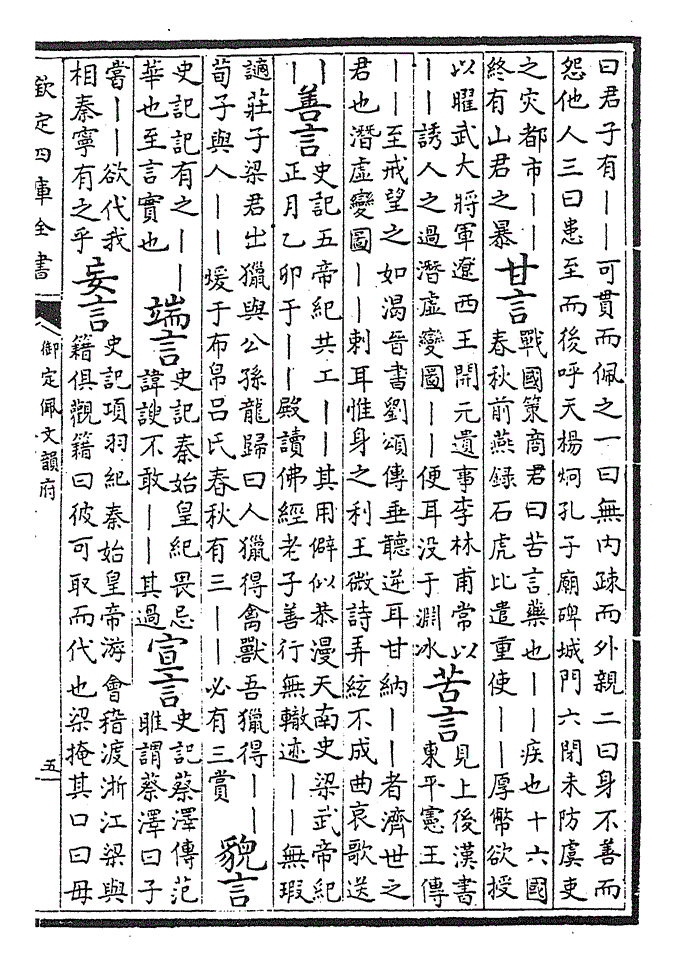 曰君子有｜｜可貫而佩之一曰無内疎而外親二曰身不善而
怨他人三曰患至而後呼天楊炯孔子廟碑城門六閉未防虞吏
之灾都市｜｜
終有山君之暴
甘言
戰國策商君曰苦言藥也｜｜疾也十六國
春秋前燕録石虎比遣重使｜｜厚幣欲授
以曜武大將軍遼西王開元遺事李林甫常以
｜｜誘人之過潛虛變圖｜｜便耳没于淵氷
苦言
見上後漢書
東平憲王傳
｜｜至戒望之如渴晉書劉頌傳垂聽逆耳甘納｜｜者濟世之
君也潛虛變圖｜｜刺耳惟身之利王微詩弄絃不成曲哀歌送
｜
｜
善言
史記五帝紀共工｜｜其用僻似恭漫天南史梁武帝紀
正月乙卯于｜｜殿讀佛經老子善行無轍迹｜｜無瑕
謫莊子梁君出獵與公孫龍歸曰人獵得禽獸吾獵得｜｜
荀子與人｜｜煖于布帛吕氏春秋有三｜｜必有三賞
貌言
史記記有之｜｜
華也至言實也
端言
史記秦始皇紀畏忌
諱諛不敢｜｜其過
宣言
史記蔡澤傳范
睢謂蔡澤曰子
嘗｜｜欲代我
相秦寧有之乎
妄言
史記項羽紀秦始皇帝游會稽渡浙江梁與
籍俱觀籍曰彼可取而代也梁掩其口曰毋
欽定四庫全書
御定佩文韻府
五